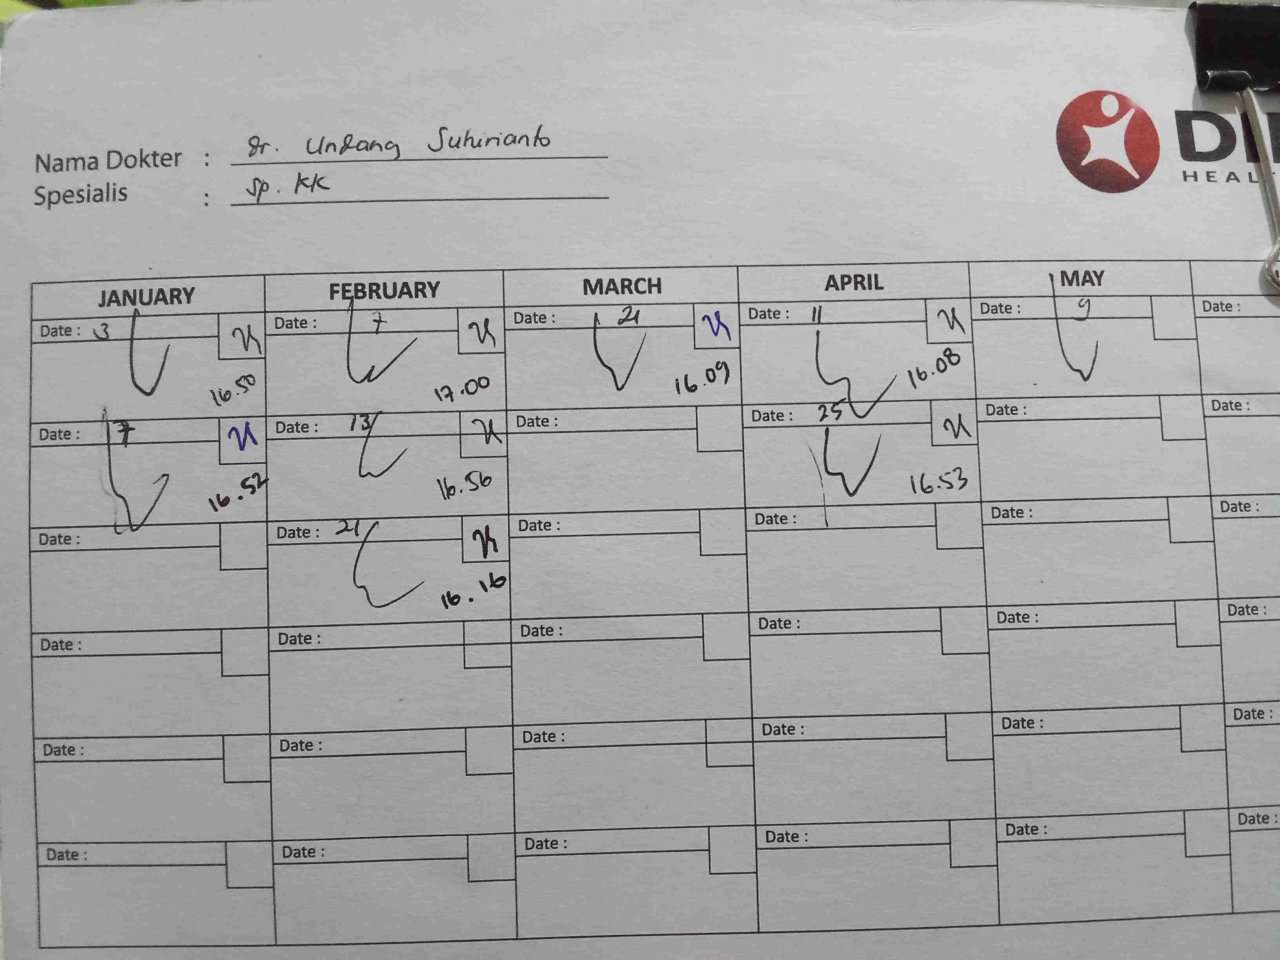 Nama Dokter : dr. Undang Suhirianto
Spesialis : Sp. KK
HEAL
JANUARY FEBRUARY MARCH APRIL MAY
Date : 3 Date : 7 Date : 21 Date : 11 Date : 9 Date :
16.50 17.00 16.09 16.08
Date : 7 Date : 13 Date : Date : 25 Date : Date :
16.52 16.56 16.53
Date : Date : 21 Date : Date : Date : Date :
16.16
Date : Date : Date : Date : Date : Date :
Date : Date : Date : Date : Date : Date :
Date : Date : Date : Date : Date : Date :